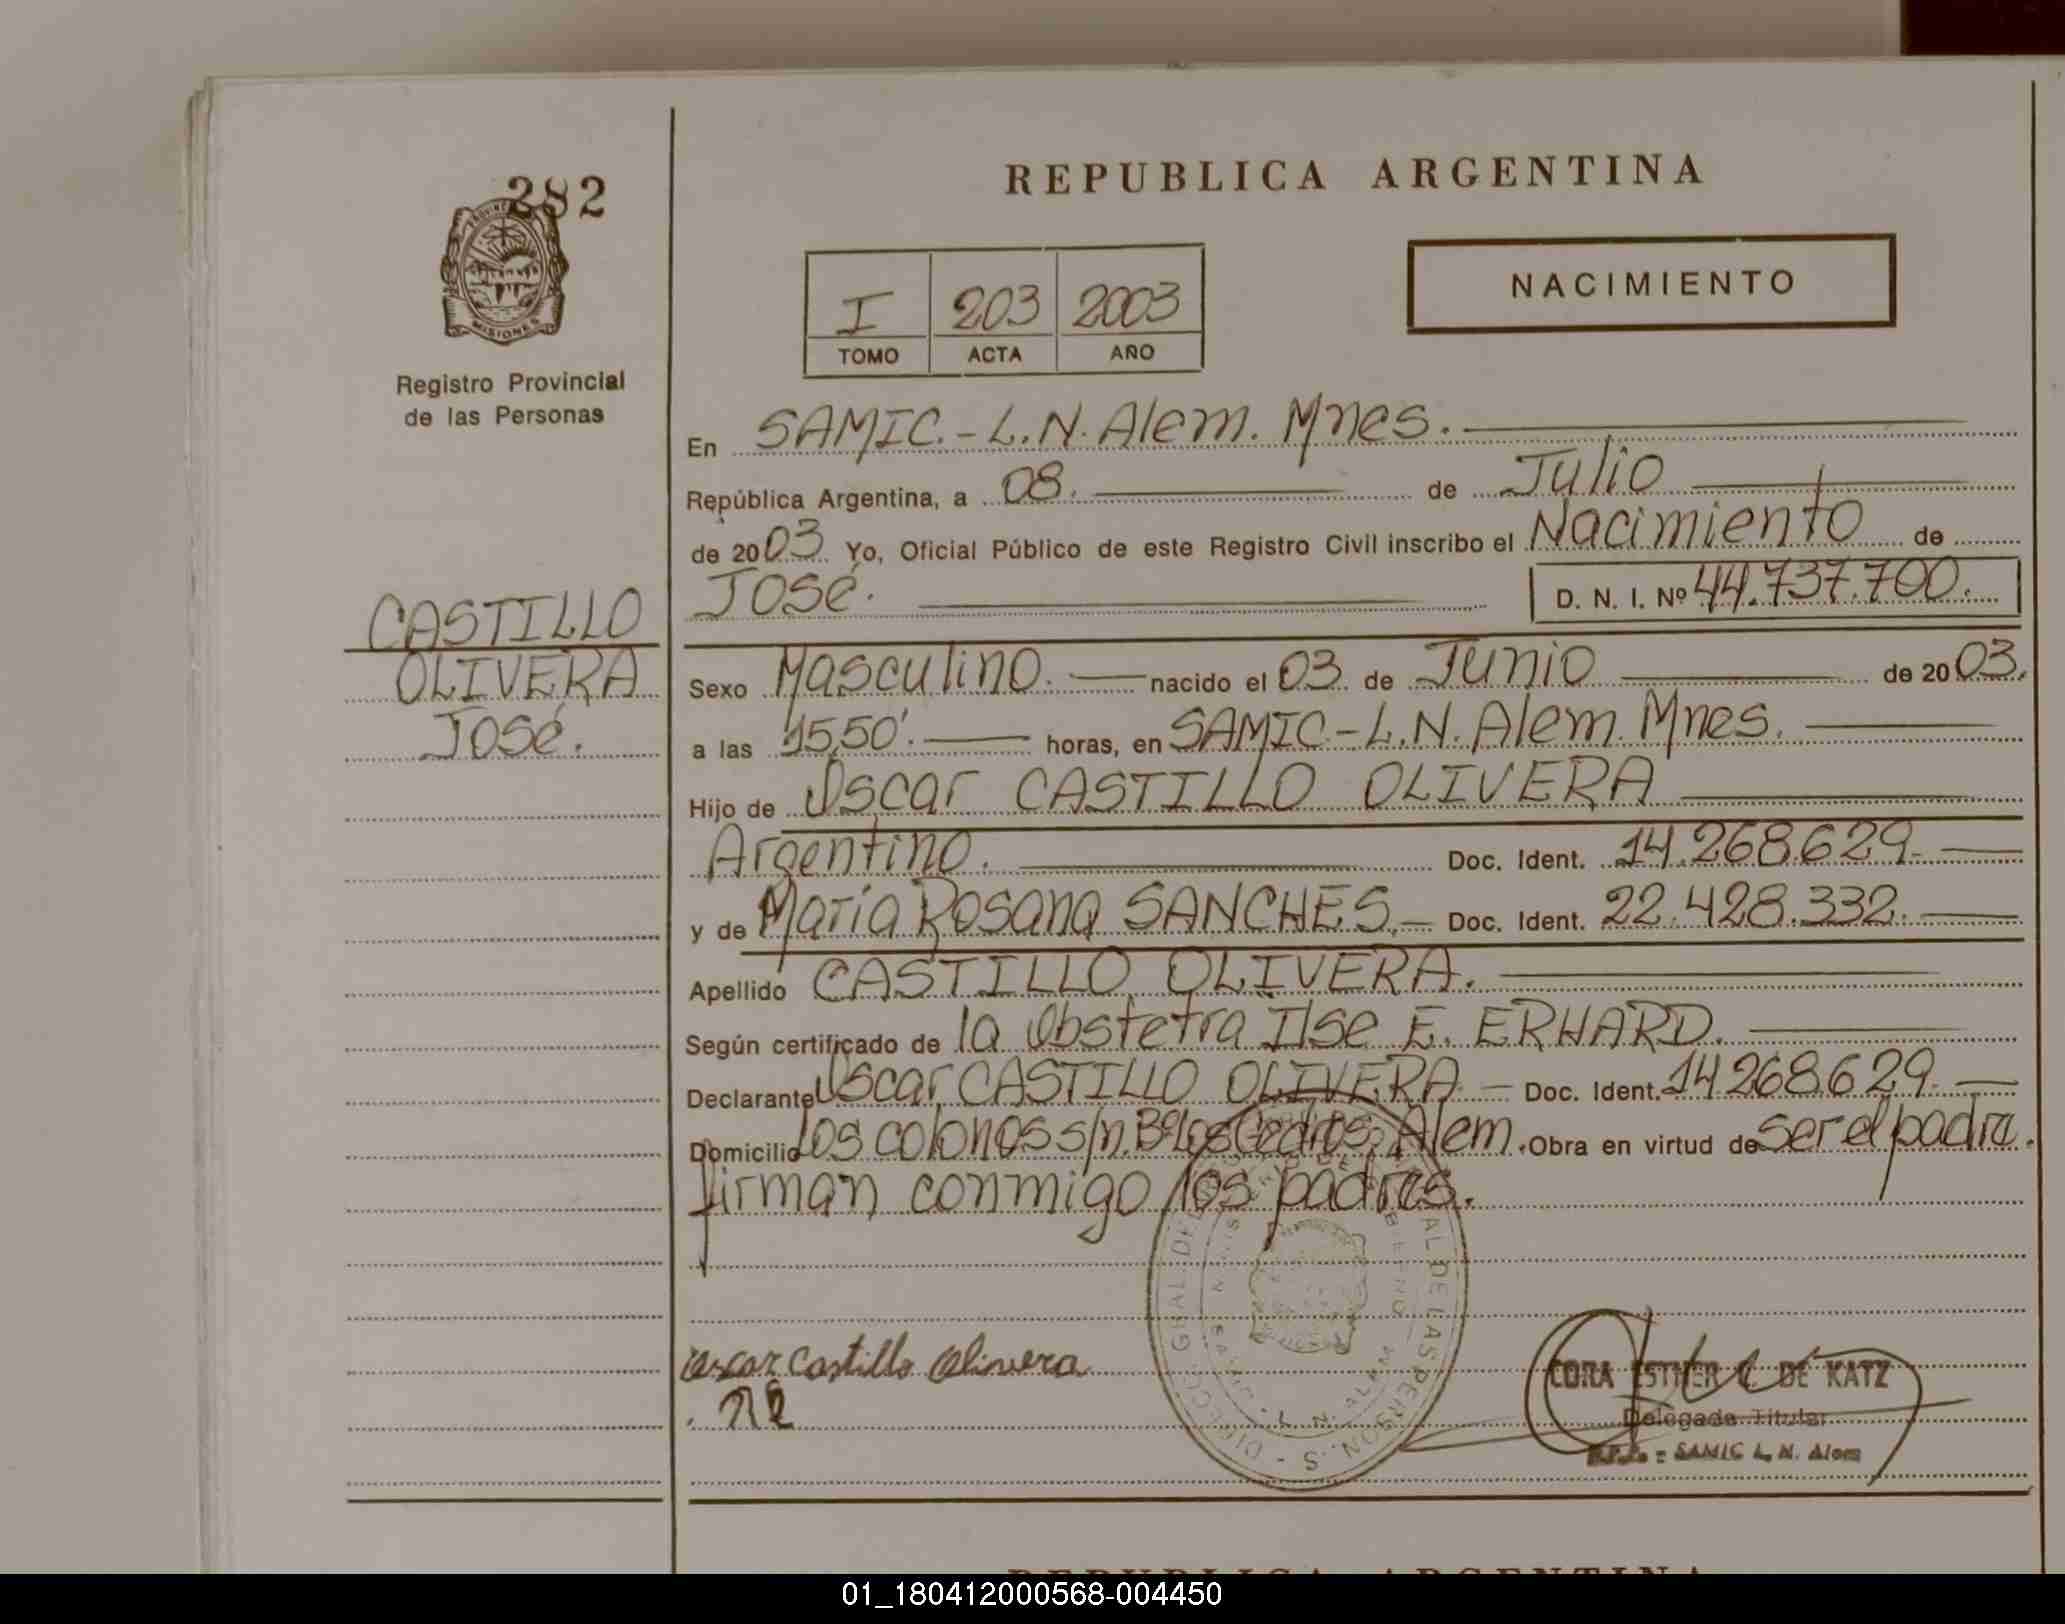 282
PROVINCIA
MISIONES
Registro Provincial
de las Personas
CASTILLO
OLIVERA
José.
REPUBLICA ARGENTINA
NACIMIENTO
I 203 2003
TOMO ACTA AÑO
En SAMIC.-L.N.Alem. Mnes.
República Argentina, a 08. de Julio
de 2003 Yo, Oficial Público de este Registro Civil inscribo el Nacimiento de
José. D. N. I. Nº 44.737.700.
Sexo Masculino. nacido el 03 de Junio de 2003.
a las 15,50'. horas, en SAMIC-L.N.Alem. Mnes.
Hijo de Oscar CASTILLO OLIVERA
Argentino. Doc. Ident. 14.268.629.
y de María Rosana SANCHES.- Doc. Ident. 22.428.332.
Apellido CASTILLO OLIVERA.
Según certificado de la Obstetra Ilse E. ERHARD.
Declarante Oscar CASTILLO OLIVERA - Doc. Ident. 14.268.629.
Domicilio Los colonos s/n. Bº Los Cedros, Alem. Obra en virtud de ser el padre.
firman conmigo los padres.
Oscar Castillo Olivera
CORA ESTHER C. DE KATZ
Delegada Titular
SAMIC L. N. Alem
L. N. ALEM
REPUBLICA ARGENTINA
01_180412000568-004450